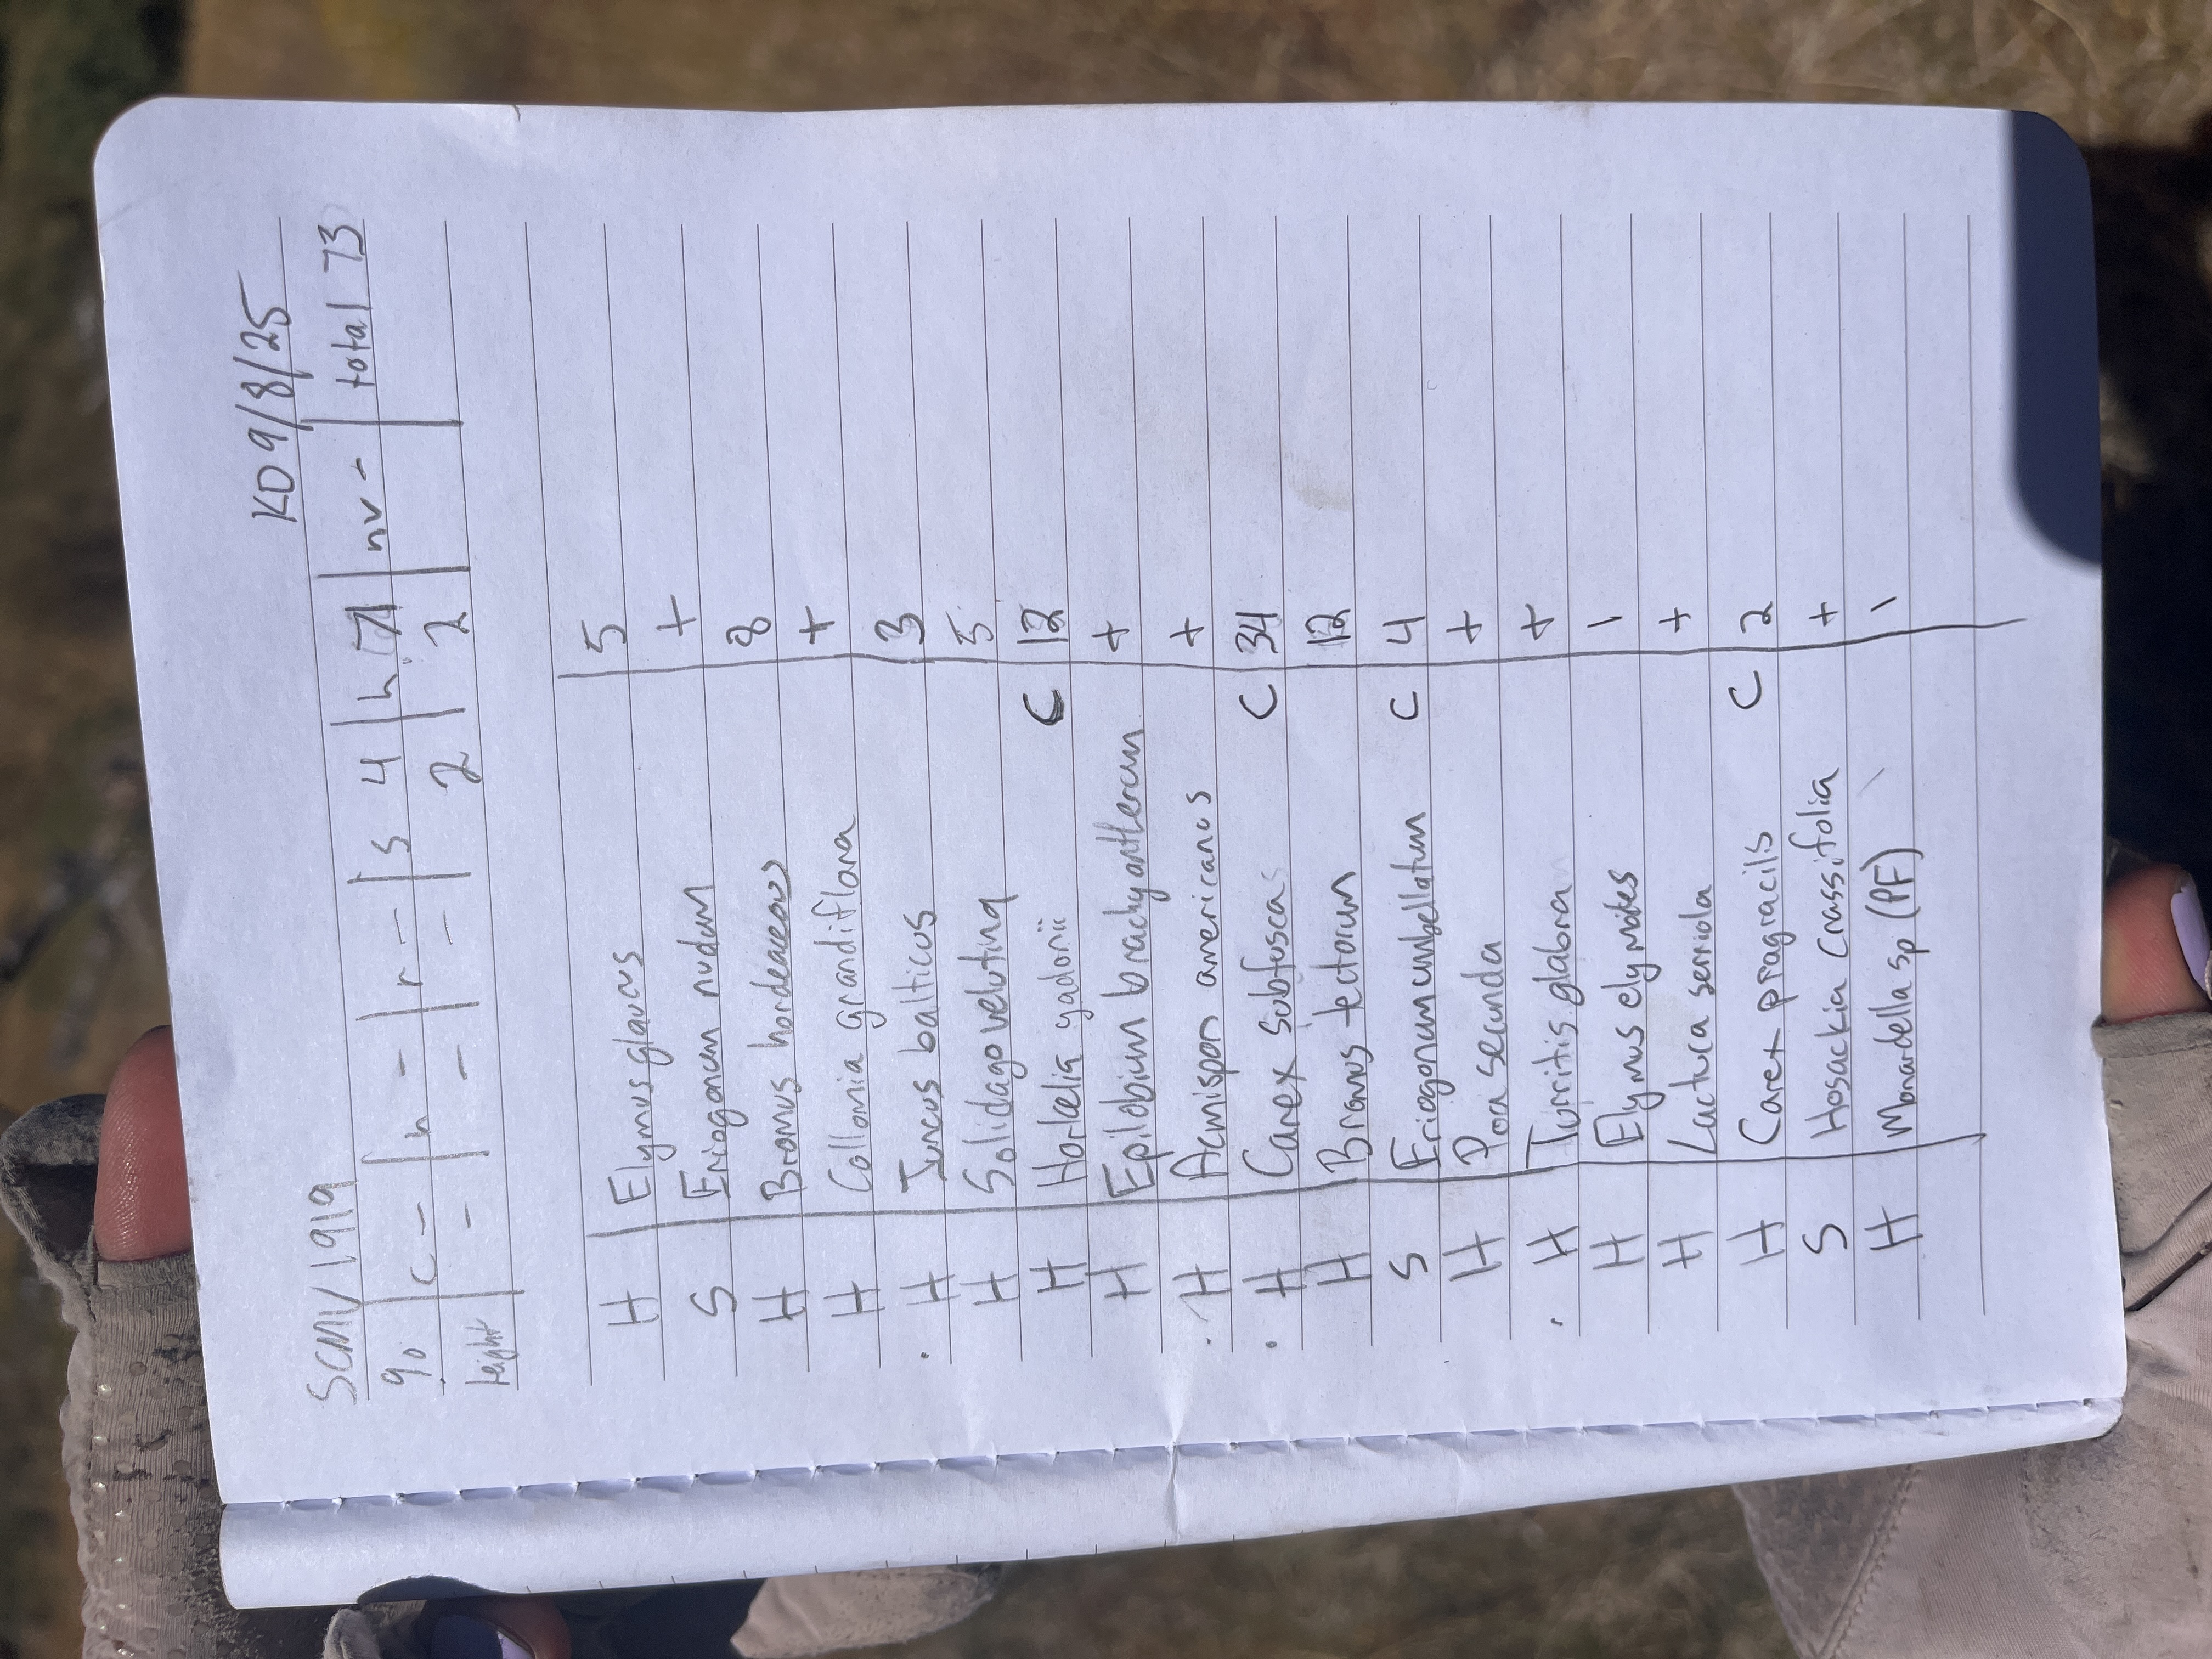 SCMV1919 KD 9/8/25
% | c - | h - | r - | s 4 | h 71 | nv - | total 73
height | - - - 2 2
H Elymus glaucus 5
S Eriogonum nudum +
H Bromus hordeaceous 8
H Collomia grandiflora +
. H Juncus balticus 3
H Solidago velutina 5
H Horkelia yadonii C 12
H Epilobium brachyantherum +
. H Acmispon americanus +
. H Carex subfusca C 34
H Bromus tectorum 12
S Eriogonum umbellatum C 4
H Poa secunda +
. H Turritis glabra +
H Elymus elymoides 1
H Lactuca serriola +
H Carex pragracilis C 2
S Hosackia crassifolia +
H Monardella sp (PF) 1